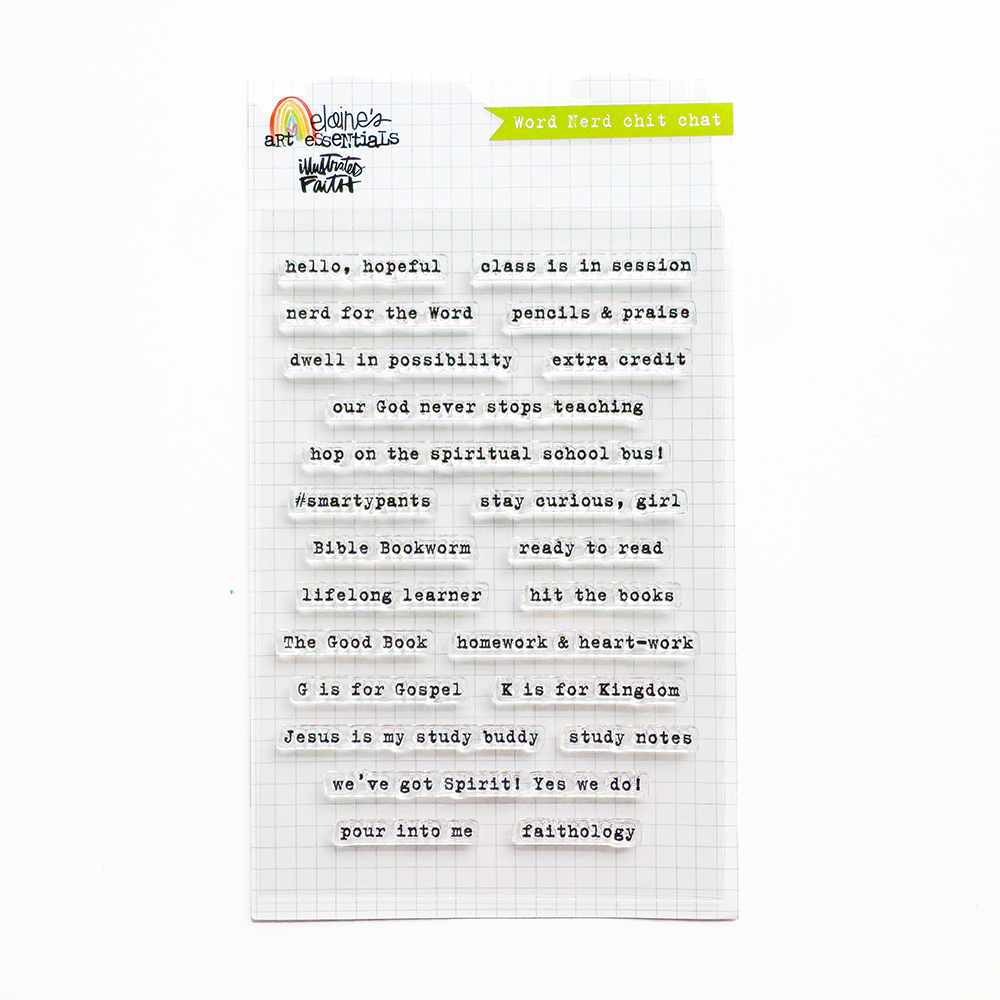 elaine's
ART ESSENTIALS
illustrated
FAITH
Word Nerd chit chat
hello, hopeful class is in session
nerd for the Word pencils & praise
dwell in possibility extra credit
our God never stops teaching
hop on the spiritual school bus!
#smartypants stay curious, girl
Bible Bookworm ready to read
lifelong learner hit the books
The Good Book homework & heart-work
G is for Gospel K is for Kingdom
Jesus is my study buddy study notes
we've got Spirit! Yes we do!
pour into me faithology